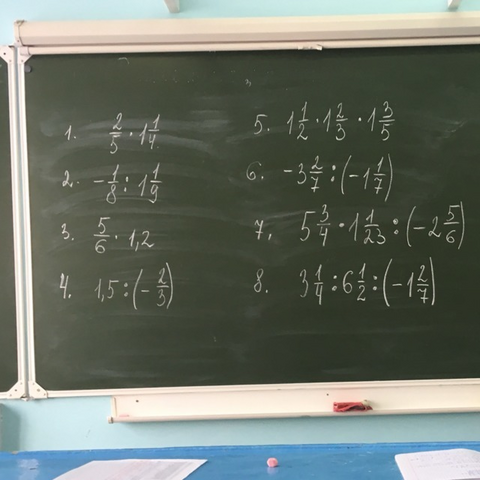 1. 2/5 · 1 1/4
2. -1/8 : 1 1/9
3. 5/6 · 1,2
4. 1,5 : (-2/3)
5. 1 1/2 · 1 2/3 · 1 3/5
6. -3 2/7 : (-1 1/7)
7. 5 3/4 · 1 1/23 : (-2 5/6)
8. 3 1/4 : 6 1/2 : (-1 2/7)